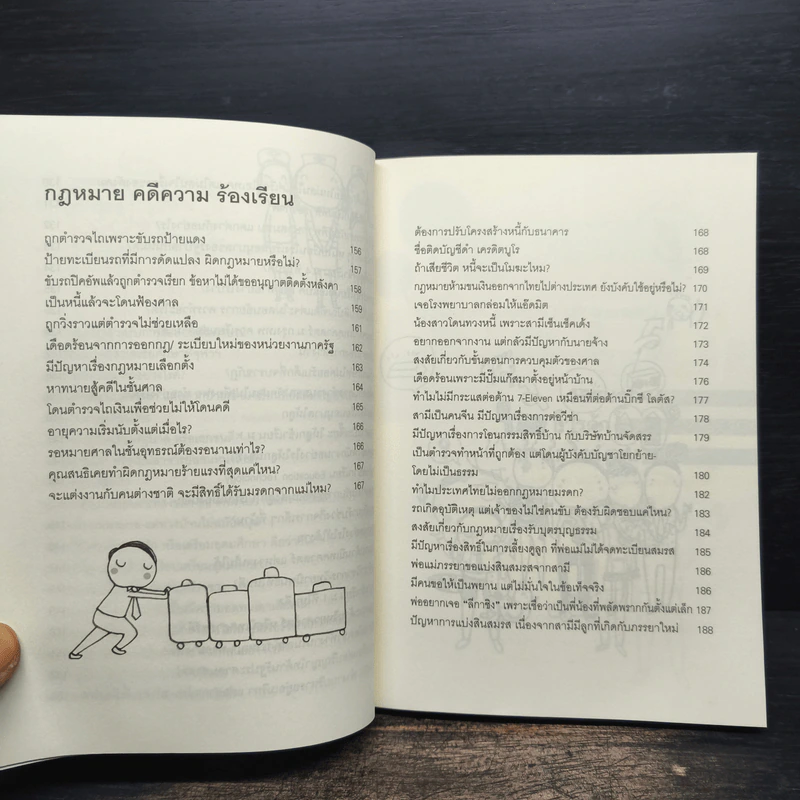 กฎหมาย คดีความ ร้องเรียน
ถูกตำรวจไถเพราะขับรถป้ายแดง 156
ป้ายทะเบียนรถที่มีการดัดแปลง ผิดกฎหมายหรือไม่? 157
ขับรถปิคอัพแล้วถูกตำรวจเรียก ข้อหาไม่ได้ขออนุญาตติดตั้งหลังคา 158
เป็นหนี้แล้วจะโดนฟ้องศาล 159
ถูกวิ่งราวแต่ตำรวจไม่ช่วยเหลือ 161
เดือดร้อนจากการออกกฎ/ ระเบียบใหม่ของหน่วยงานภาครัฐ 162
มีปัญหาเรื่องกฎหมายเลือกตั้ง 163
หาทนายสู้คดีในชั้นศาล 164
โดนตำรวจไถเงินเพื่อช่วยไม่ให้โดนคดี 165
อายุความเริ่มนับตั้งแต่เมื่อไร? 166
รอหมายศาลในชั้นอุทธรณ์ต้องรอนานเท่าไร? 166
คุณสนธิเคยทำผิดกฎหมายร้ายแรงที่สุดแค่ไหน? 167
จะแต่งงานกับคนต่างชาติ จะมีสิทธิ์ได้รับมรดกจากแม่ไหม? 167
ต้องการปรับโครงสร้างหนี้กับธนาคาร 168
ชื่อติดบัญชีดำ เครดิตบูโร 168
ถ้าเสียชีวิต หนี้จะเป็นโมฆะไหม? 169
กฎหมายห้ามขนเงินออกจากไทยไปต่างประเทศ ยังบังคับใช้อยู่หรือไม่? 170
เจอโรงพยาบาลกล่อมให้แอ๊ดมิต 171
น้องสาวโดนทวงหนี้ เพราะสามีเซ็นเช็คเด้ง 172
อยากออกจากงาน แต่กลัวมีปัญหากับนายจ้าง 173
สงสัยเกี่ยวกับขั้นตอนการควบคุมตัวของศาล 174
เดือดร้อนเพราะมีปั๊มแก๊สมาตั้งอยู่หน้าบ้าน 176
ทำไมไม่มีกระแสต่อต้าน 7-Eleven เหมือนที่ต่อต้านบิ๊กซี โลตัส? 177
สามีเป็นคนจีน มีปัญหาเรื่องการต่อวีซ่า 178
มีปัญหาเรื่องการโอนกรรมสิทธิ์บ้าน กับบริษัทบ้านจัดสรร 179
เป็นตำรวจทำหน้าที่ถูกต้อง แต่โดนผู้บังคับบัญชาโยกย้าย-
โดยไม่เป็นธรรม 180
ทำไมประเทศไทยไม่ออกกฎหมายมรดก? 182
รถเกิดอุบัติเหตุ แต่เจ้าของไม่ใช่คนขับ ต้องรับผิดชอบแค่ไหน? 183
สงสัยเกี่ยวกับกฎหมายเรื่องรับบุตรบุญธรรม 184
มีปัญหาเรื่องสิทธิ์ในการเลี้ยงดูลูก ที่พ่อแม่ไม่ได้จดทะเบียนสมรส 185
พ่อแม่ภรรยาขอแบ่งสินสมรสจากสามี 186
มีคนขอให้เป็นพยาน แต่ไม่มั่นใจในข้อเท็จจริง 186
พ่ออยากเจอ "ลีกาชิง" เพราะเชื่อว่าเป็นพี่น้องที่พลัดพรากกันตั้งแต่เด็ก 187
ปัญหาการแบ่งสินสมรส เนื่องจากสามีมีลูกที่เกิดกับภรรยาใหม่ 188